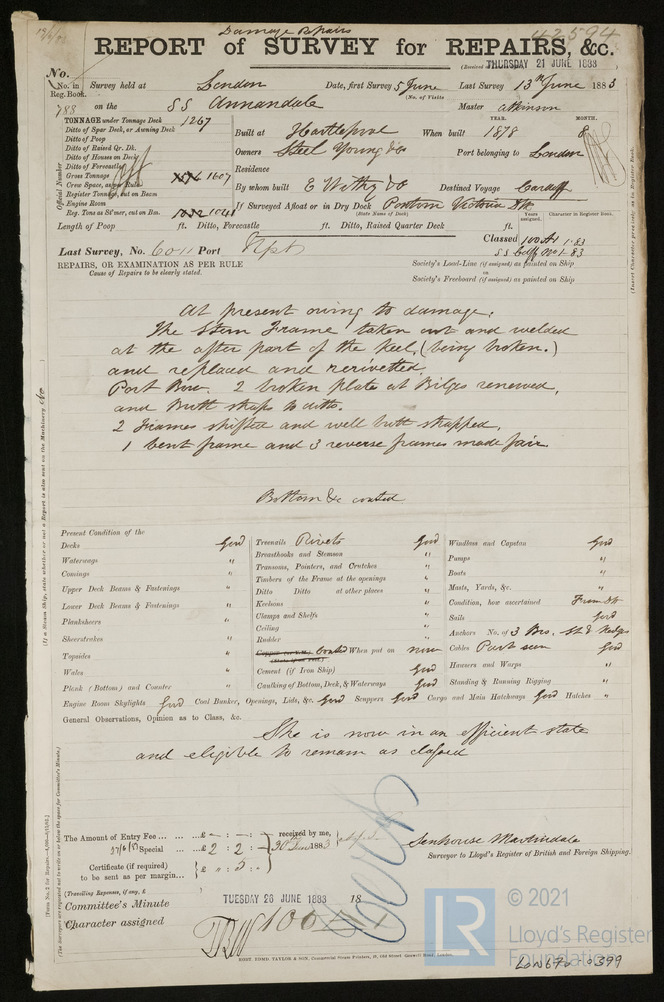 Damage Repairs
42594
REPORT of SURVEY for REPAIRS, &c.
(Received THURSDAY 21 JUNE 1883
No.
(No. in Reg. Book.
Survey held at London Date, first Survey 5 June Last Survey 13th June 1883
(No. of Visits
788 on the SS Annandale Master Atkinson
TONNAGE under Tonnage Deck 1267
Ditto of Spar Deck, or Awning Deck
Ditto of Poop
Ditto of Raised Qr. Dk.
Ditto of Houses on Deck
Ditto of Forecastle
Gross Tonnage 1607
Crew Space, as per Rule
Register Tonnage, cut on Beam
Engine Room
Reg. Tons as St'mer, cut on Bm. 1041
Official Number
YEAR. MONTH.
Built at Hartlepool When built 1878 8
Owners Steel Young & Co Port belonging to London
Residence
By whom built E Withy & Co Destined Voyage Cardiff
If Surveyed Afloat or in Dry Dock Pontoon Victoria Dk
(State Name of Dock.)
Years assigned. Character in Register Book.
Length of Poop ft. Ditto, Forecastle ft. Ditto, Raised Quarter Deck ft.
Classed 100A1 1.83
SS Cdff No1-83
Last Survey, No. 6011 Port Npt
REPAIRS, OR EXAMINATION AS PER RULE
Cause of Repairs to be clearly stated.
Society's Load-Line (if assigned) as painted on Ship
or
Society's Freeboard (if assigned) as painted on Ship
At present owing to damage.
The Stern Frame taken out and welded
at the after part of the keel, (being broken.)
and replaced and rerivetted.
Port Bow. 2 broken plate at Bilges renewed,
and Butt straps to ditto.
2 Frames shifted and well butt strapped,
1 bent frame and 3 reverse frames made fair.
Bottom &c coated
Present Condition of the
Decks Good
Waterways "
Comings "
Upper Deck Beams & Fastenings "
Lower Deck Beams & Fastenings "
Planksheers "
Sheerstrakes "
Topsides "
Wales "
Plank (Bottom) and Counter "
Treenails Rivets Good
Breasthooks and Stemson "
Transoms, Pointers, and Crutches "
Timbers of the Frame at the openings "
Ditto Ditto at other places "
Keelsons "
Clamps and Shelfs "
Ceiling "
Rudder "
Copper (or Y.M.) Coated When put on now
Cement (if Iron Ship) Good
Caulking of Bottom, Deck, & Waterways Good
Windlass and Capstan Good
Pumps "
Boats "
Masts, Yards, &c. "
Condition, how ascertained From Dk
Sails Good
Anchors No. of 3 Brs. St & Kedges
Cables Part seen Good
Hawsers and Warps "
Standing & Running Rigging "
Engine Room Skylights Good Coal Bunker, Openings, Lids, &c. Good Scuppers Good Cargo and Main Hatchways Good Hatches "
General Observations, Opinion as to Class, &c.
She is now in an efficient state
and eligible to remain as classed
The Amount of Entry Fee ... ... ...£ - : - : - received by me,
Special ... ...£ 2 : 2 : - 30 June 1883
Certificate (if required) to be sent as per margin... £ " : 5 : -
(Travelling Expenses, if any, £ )
Senhouse Martindale
Surveyor to Lloyd's Register of British and Foreign Shipping.
Committee's Minute TUESDAY 26 JUNE 1883 18
Character assigned 100
Cert
KENT, EDMD. TAYLOR & SON, Commercial Steam Printers,
© 2021
LR
Lloyd's Register
Foundation
LON670-0399